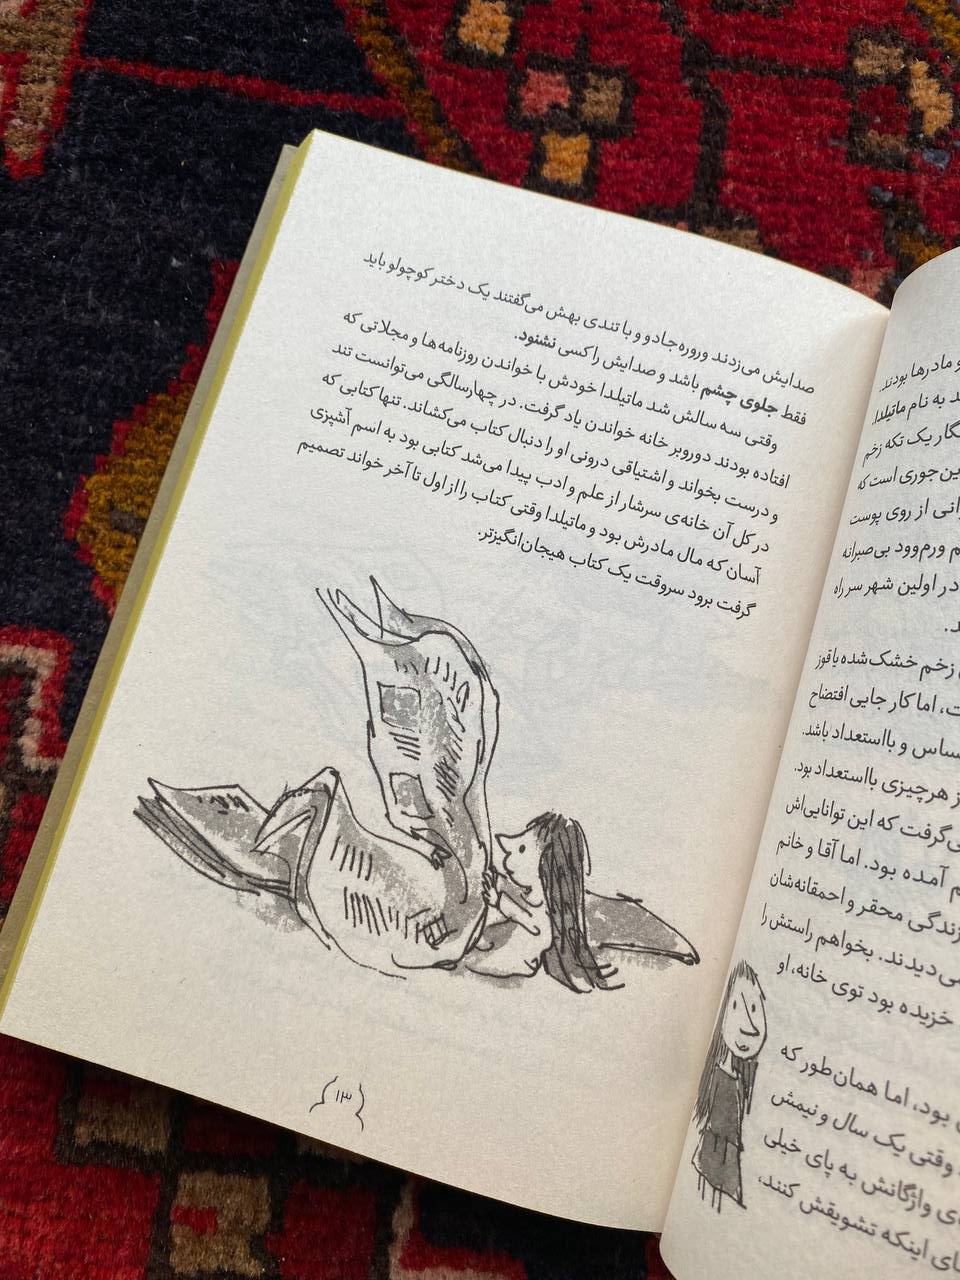 و مادرها بودند.
به نام ماتیلدا.
یک تکه زخم
است که
از روی پوست
ورم‌وود بی‌صبرانه
در اولین شهر سر راه
زخم خشک‌شده یا قوز
اما کار جایی افتضاح
و بااستعداد باشد.
هرچیزی بااستعداد بود.
که این توانایی‌اش
آمده بود. اما آقا و خانم
زندگی محقر و احمقانه‌شان
بخواهم راستش را
خزیده بود توی خانه، او
بود، اما همان‌طور که
وقتی یک سال و نیمش
واژگانش به پای خیلی
اینکه تشویقش کنند،
صدایش می‌زدند وروره‌جادو و با تندی بهش می‌گفتند یک دختر کوچولو باید
فقط جلوی چشم باشد و صدایش را کسی نشنود.
وقتی سه سالش شد ماتیلدا خودش با خواندن روزنامه‌ها و مجلاتی که
افتاده بودند دوروبر خانه خواندن یاد گرفت. در چهارسالگی می‌توانست تند
و درست بخواند و اشتیاقی درونی او را دنبال کتاب می‌کشاند. تنها کتابی که
در کل آن خانه‌ی سرشار از علم و ادب پیدا می‌شد کتابی بود به اسم آشپزی
آسان که مال مادرش بود و ماتیلدا وقتی کتاب را از اول تا آخر خواند تصمیم
گرفت برود سروقت یک کتاب هیجان‌انگیزتر.
۱۳